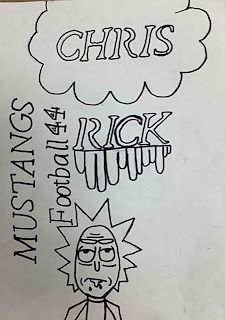 CHRIS
RICK
MUSTANGS
Football 44